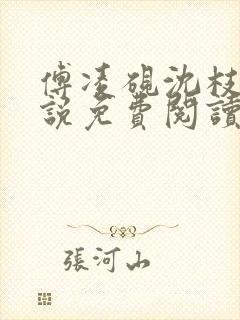 傅凌硯沈枝
說免費閱讀
張河山